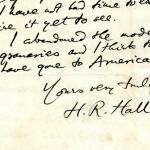 I have not had time to
see it yet to see.
I abandoned the mode
granaries and I think to
have gone to America
Yours very truly
H. R. Hall